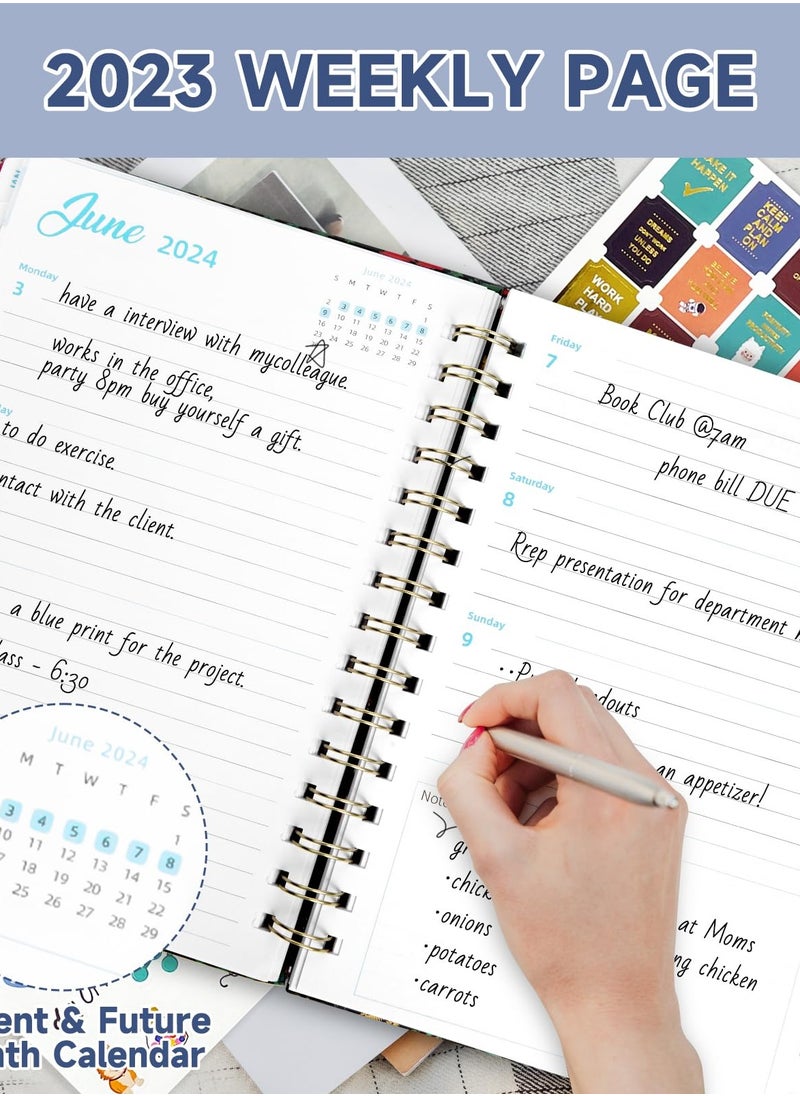 2023 WEEKLY PAGE
June 2024
June 2024
S M T W T F S
1
2 3 4 5 6 7 8
9 10 11 12 13 14 15
16 17 18 19 20 21 22
23 24 25 26 27 28 29
Monday
3
have a interview with mycolleague.
works in the office,
party 8pm buy yourself a gift.
to do exercise.
contact with the client.
a blue print for the project.
- 6:30
June 2024
M T W T F S
1
3 4 5 6 7 8
10 11 12 13 14 15
18 19 20 21 22
25 26 27 28 29
& Future
Calendar
MAKE IT
HAPPEN
KEEP
CALM
AND
PLAN
ON
DREAMS
DON'T WORK
UNLESS
YOU DO
WORK
HARD
Friday
7
Book Club @7am
phone bill DUE
Saturday
8
Rrep presentation for department
Sunday
9
an appetizer!
•onions
•potatoes
•carrots
at Moms
chicken